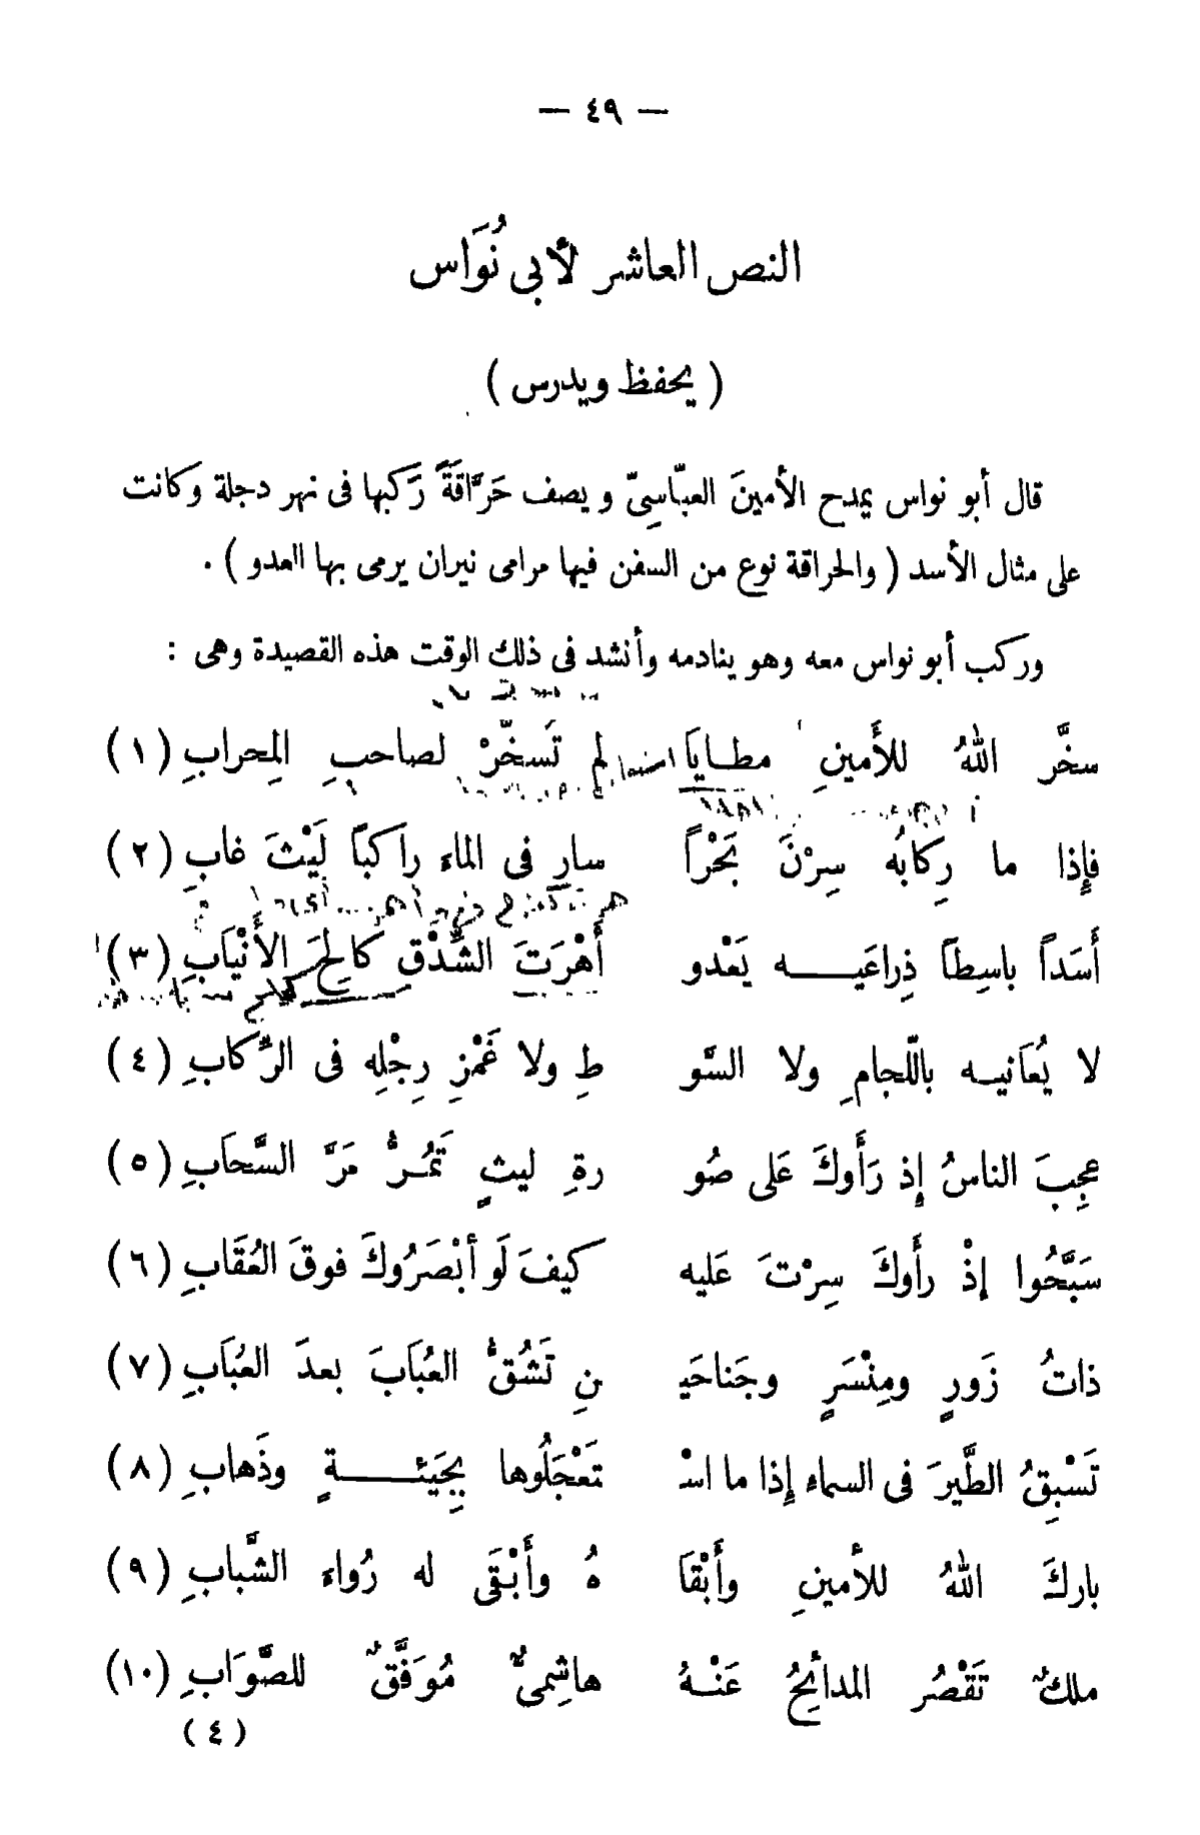 — ٤٩ —
النص العاشر لأبى نُوَاس
( يحفظ ويدرس )
قال أبو نواس يمدح الأمينَ العبّاسِىّ ويصف حَرَّاقَةً رَكبها فى نهر دجلة وكانت
على مثال الأسد ( والحراقة نوع من السفن فيها مرامى نيران يرمى بها العدو ) .
وركب أبو نواس معه وهو ينادمه وأنشد فى ذلك الوقت هذه القصيدة وهى :
سخَّر اللهُ للأَمينِ مطايَا لم تَسخّرْ لصاحبِ المِحرابِ (١)
فإِذا ما رِكابُه سِرْنَ بَحْراً سارِ فى الماء راكباً لَيْثَ غابِ (٢)
أَسَداً باسِطاً ذِراعَيه يَعْدو أَهْرَتَ الشِّدْقِ كالِحَ الأَنْيَابِ (٣)
لا يُعَانيه باللّجامِ ولا السَّو طِ ولا غَمْزِ رِجْلِه فى الرِّكابِ (٤)
عجِبَ الناسُ إِذ رَأَوكَ عَلى صُو رةِ ليثٍ تَمُرُّ مَرَّ السَّحاَبِ (٥)
سَبَّحُوا إذْ رأَوكَ سِرْتَ عَليه كيفَ لَو أبْصَرُوكَ فوقَ العُقَابِ (٦)
ذاتُ زَورٍ ومِنْسَرٍ وجَناحَيـ نِ تَشُقُّ العُبَابَ بعدَ العُبَابِ (٧)
تَسْبِقُ الطَّيرَ فى السماء إِذا ما اسْـ تَعْجَلُوها بِجَيئةٍ وذَهابِ (٨)
باركَ اللهُ للأَمينِ وأَبْقَا هُ وأَبْقَى له رُواءَ الشَّبابِ (٩)
ملكٌ تَقْصُر المدائِحُ عَنْهُ هاشِمىٌّ مُوَفَّقٌ للصَّوَابِ (١٠)
( ٤ )